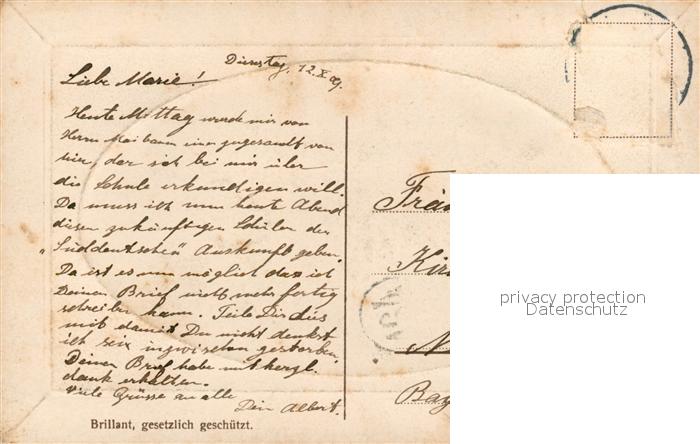 Dienstag, 12.X.09.
Liebe Marie!
Heute Mittag wurde mir von
Herrn Maibaum einer zugesandt von
hier, der sich bei mir über
die Schule erkundigen will.
Da muss ich nun heute Abend
diesen zukünftigen Schüler der
„Süddeutschen" Auskunft geben.
Da ist es nun möglich dass ich
Deinen Brief nicht mehr fertig
schreiben kann. Teile Dir dies
mit damit Du nicht denkst
ich sei inzwischen gestorben.
Deinen Brief habe mit herzl.
dank erhalten.
Viele Grüsse an alle
Dein Albert.
Brillant, gesetzlich geschützt.
privacy protection
Datenschutz